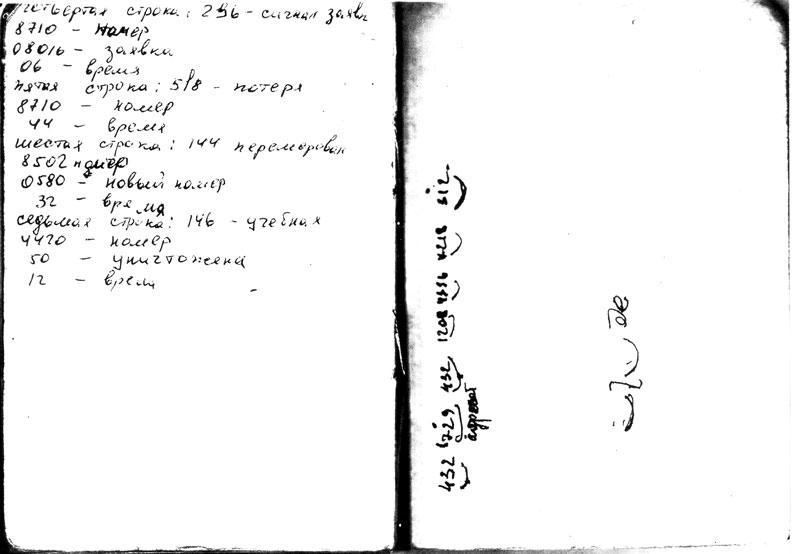 четвертая строка: 296 - сигнал заявки
8710 - номер
08016 - заявка
06 - время
пятая строка: 518 - потеря
8710 - номер
44 - время
шестая строка: 144 перемерован
8502 номер
0580 - новый номер
32 - время
седьмая строка: 146 - учебная
4420 - номер
50 - уничтожена
12 - время
432 729 432 1208 4336 4218 312